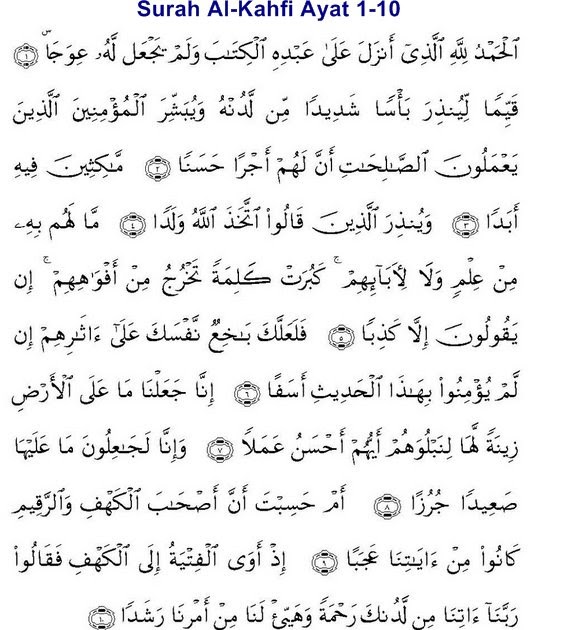 Surah Al-Kahfi Ayat 1-10
ٱلۡحَمۡدُ لِلَّهِ ٱلَّذِيٓ أَنزَلَ عَلَىٰ عَبۡدِهِ ٱلۡكِتَٰبَ وَلَمۡ يَجۡعَل لَّهُۥ عِوَجَاۜ ١
قَيِّمٗا لِّيُنذِرَ بَأۡسٗا شَدِيدٗا مِّن لَّدُنۡهُ وَيُبَشِّرَ ٱلۡمُؤۡمِنِينَ ٱلَّذِينَ
يَعۡمَلُونَ ٱلصَّٰلِحَٰتِ أَنَّ لَهُمۡ أَجۡرًا حَسَنٗا ٢ مَّٰكِثِينَ فِيهِ
أَبَدٗا ٣ وَيُنذِرَ ٱلَّذِينَ قَالُواْ ٱتَّخَذَ ٱللَّهُ وَلَدٗا ٤ مَّا لَهُم بِهِۦ
مِنۡ عِلۡمٖ وَلَا لِأٓبَآئِهِمۡۚ كَبُرَتۡ كَلِمَةٗ تَخۡرُجُ مِنۡ أَفۡوَٰهِهِمۡۚ إِن
يَقُولُونَ إِلَّا كَذِبٗا ٥ فَلَعَلَّكَ بَٰخِعٞ نَّفۡسَكَ عَلَىٰٓ ءَاثَٰرِهِمۡ إِن
لَّمۡ يُؤۡمِنُواْ بِهَٰذَا ٱلۡحَدِيثِ أَسَفًا ٦ إِنَّا جَعَلۡنَا مَا عَلَى ٱلۡأَرۡضِ
زِينَةٗ لَّهَا لِنَبۡلُوَهُمۡ أَيُّهُمۡ أَحۡسَنُ عَمَلٗا ٧ وَإِنَّا لَجَٰعِلُونَ مَا عَلَيۡهَا
صَعِيدٗا جُرُزًا ٨ أَمۡ حَسِبۡتَ أَنَّ أَصۡحَٰبَ ٱلۡكَهۡفِ وَٱلرَّقِيمِ
كَانُواْ مِنۡ ءَايَٰتِنَا عَجَبًا ٩ إِذۡ أَوَى ٱلۡفِتۡيَةُ إِلَى ٱلۡكَهۡفِ فَقَالُواْ
رَبَّنَآ ءَاتِنَا مِن لَّدُنكَ رَحۡمَةٗ وَهَيِّئۡ لَنَا مِنۡ أَمۡرِنَا رَشَدٗا ١٠